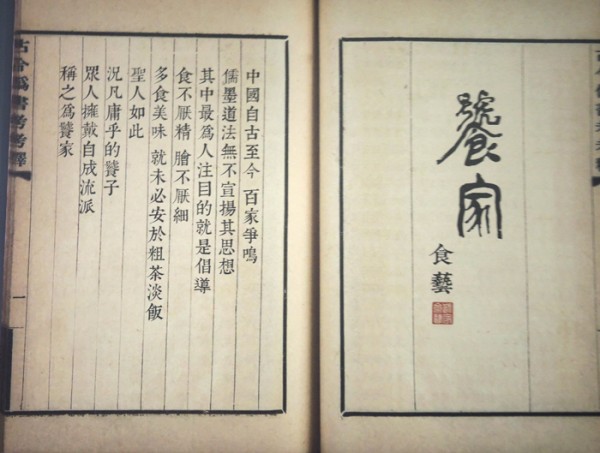 饕家
食藝
中國自古至今 百家爭鳴
儒墨道法無不宣揚其思想
其中最爲人注目的就是倡導
食不厭精 膾不厭細
多食美味 就未必安於粗茶淡飯
聖人如此
況凡庸乎的饕子
眾人擁戴自成流派
稱之爲饕家
古今僞書考考釋
一